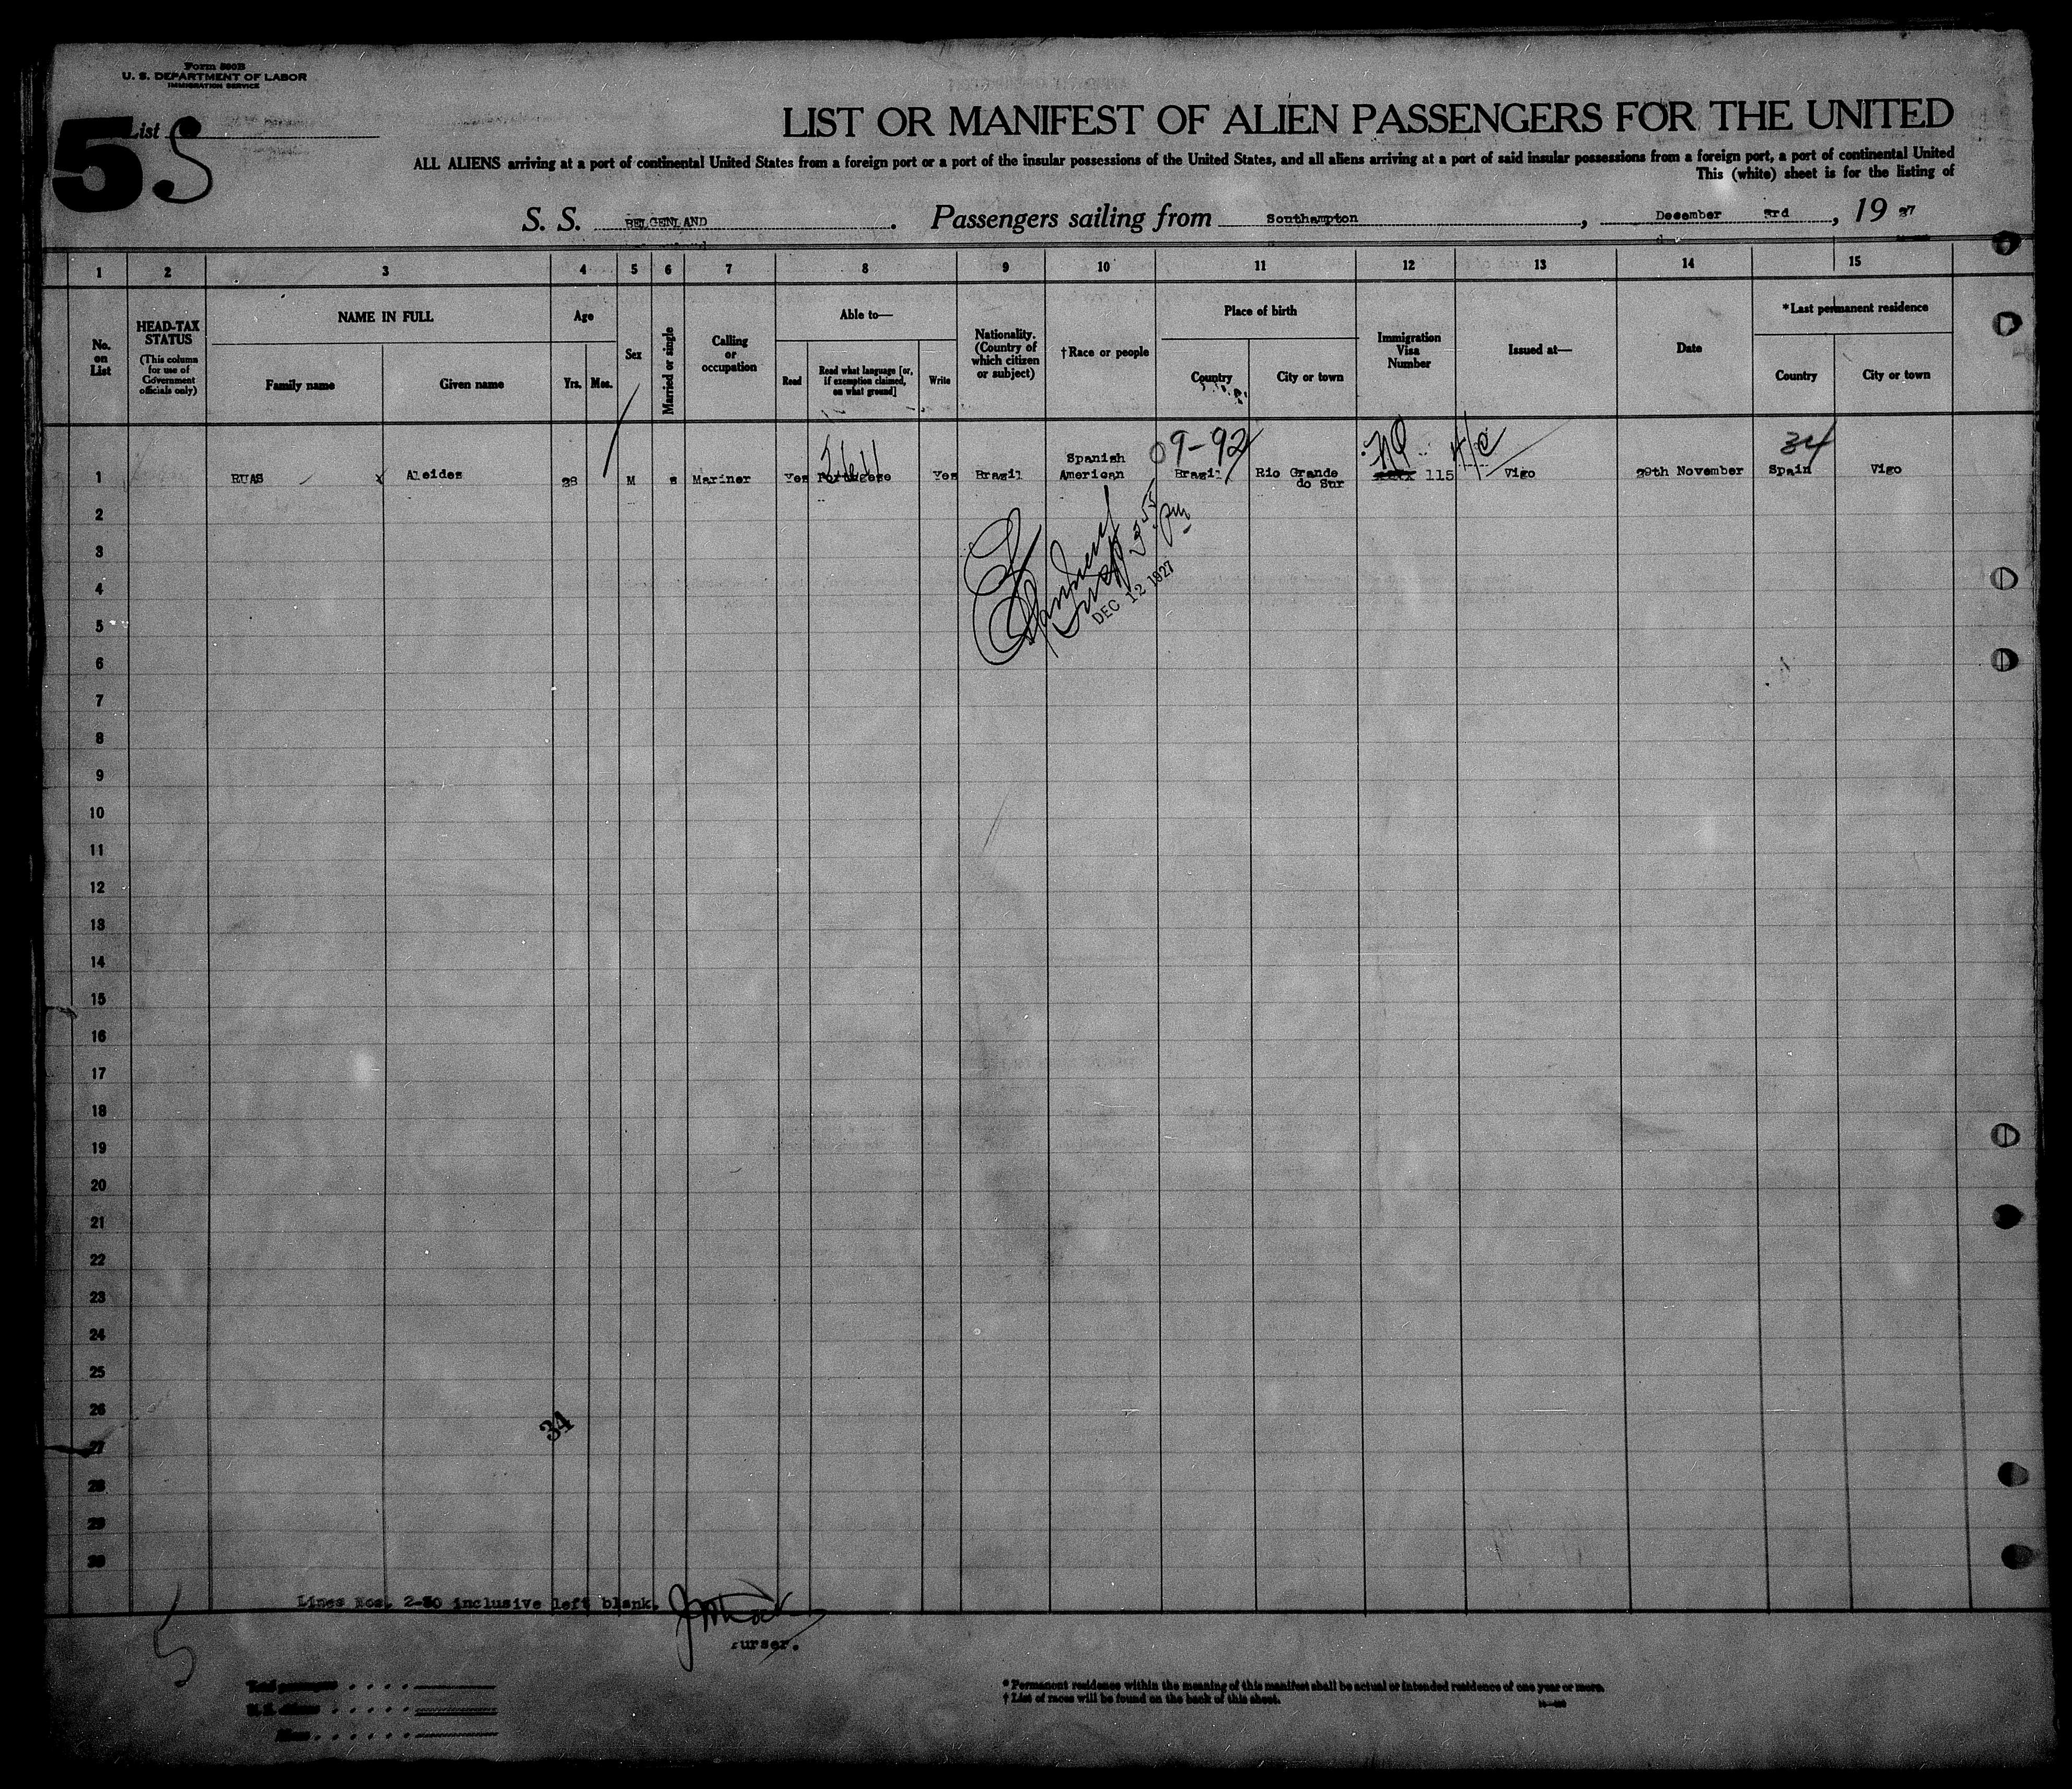 Form 500B
U. S. DEPARTMENT OF LABOR
IMMIGRATION SERVICE
List
5 5
LIST OR MANIFEST OF ALIEN PASSENGERS FOR THE UNITED
ALL ALIENS arriving at a port of continental United States from a foreign port or a port of the insular possessions of the United States, and all aliens arriving at a port of said insular possessions from a foreign port, a port of continental United
This (white) sheet is for the listing of
S. S. BELGENLAND. Passengers sailing from Southampton, December 3rd, 19 27
1 2 3 4 5 6 7 8 9 10 11 12 13 14 15
No. on List
HEAD-TAX STATUS
(This column for use of Government officials only)
NAME IN FULL
Family name
Given name
Age
Yrs.
Mos.
Sex
Married or single
Calling or occupation
Able to—
Read
Read what language [or, if exemption claimed, on what ground]
Write
Nationality. (Country of which citizen or subject)
†Race or people
Place of birth
Country
City or town
Immigration Visa Number
Issued at—
Date
*Last permanent residence
Country
City or town
09-92
34
1 RUAS x Aleides 28 M s Mariner Yes Portugese Yes Brazil Spanish American Brazil Rio Grande do Sur 115 Vigo 29th November Spain Vigo
2
3
4
5
6
7
8
9
10
11
12
13
14
15
16
17
18
19
20
21
22
23
24
25
26
27
28
29
30
3 55 pm
DEC 12 1927
34
Lines Nos. 2-30 inclusive left blank.
Purser.
5
Total passengers
U. S. citizens
Aliens
* Permanent residence within the meaning of this manifest shall be actual or intended residence of one year or more.
† List of races will be found on the back of this sheet.